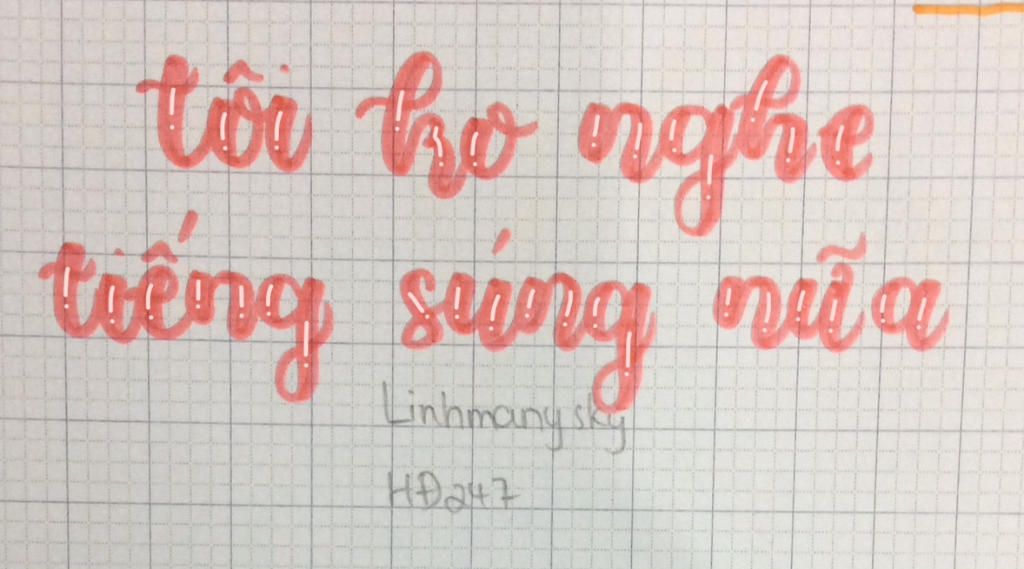 tôi ho nghe
tiếng súng nữa
Linhmanysky
HĐ247